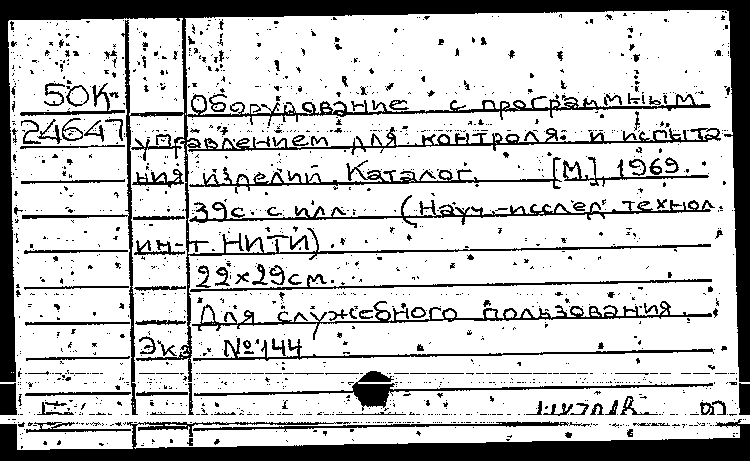 50К-
24647
Оборудование с программным
управлением для контроля и испыта-
ния изделий. Каталог. [М.], 1969.
39с. с илл. (Науч.-исслед. технол.
ин-т НИТИ).
22×29см.
Для служебного пользования.
Экз. №144